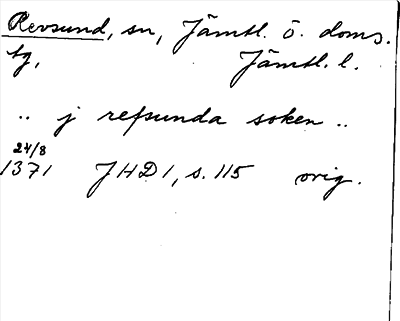 Revsund, sn, Jämtl. ö. doms.
tg, Jämtl. l.
.. j refsunda soken ..
24/8
1371 JHD 1, s. 115 orig.